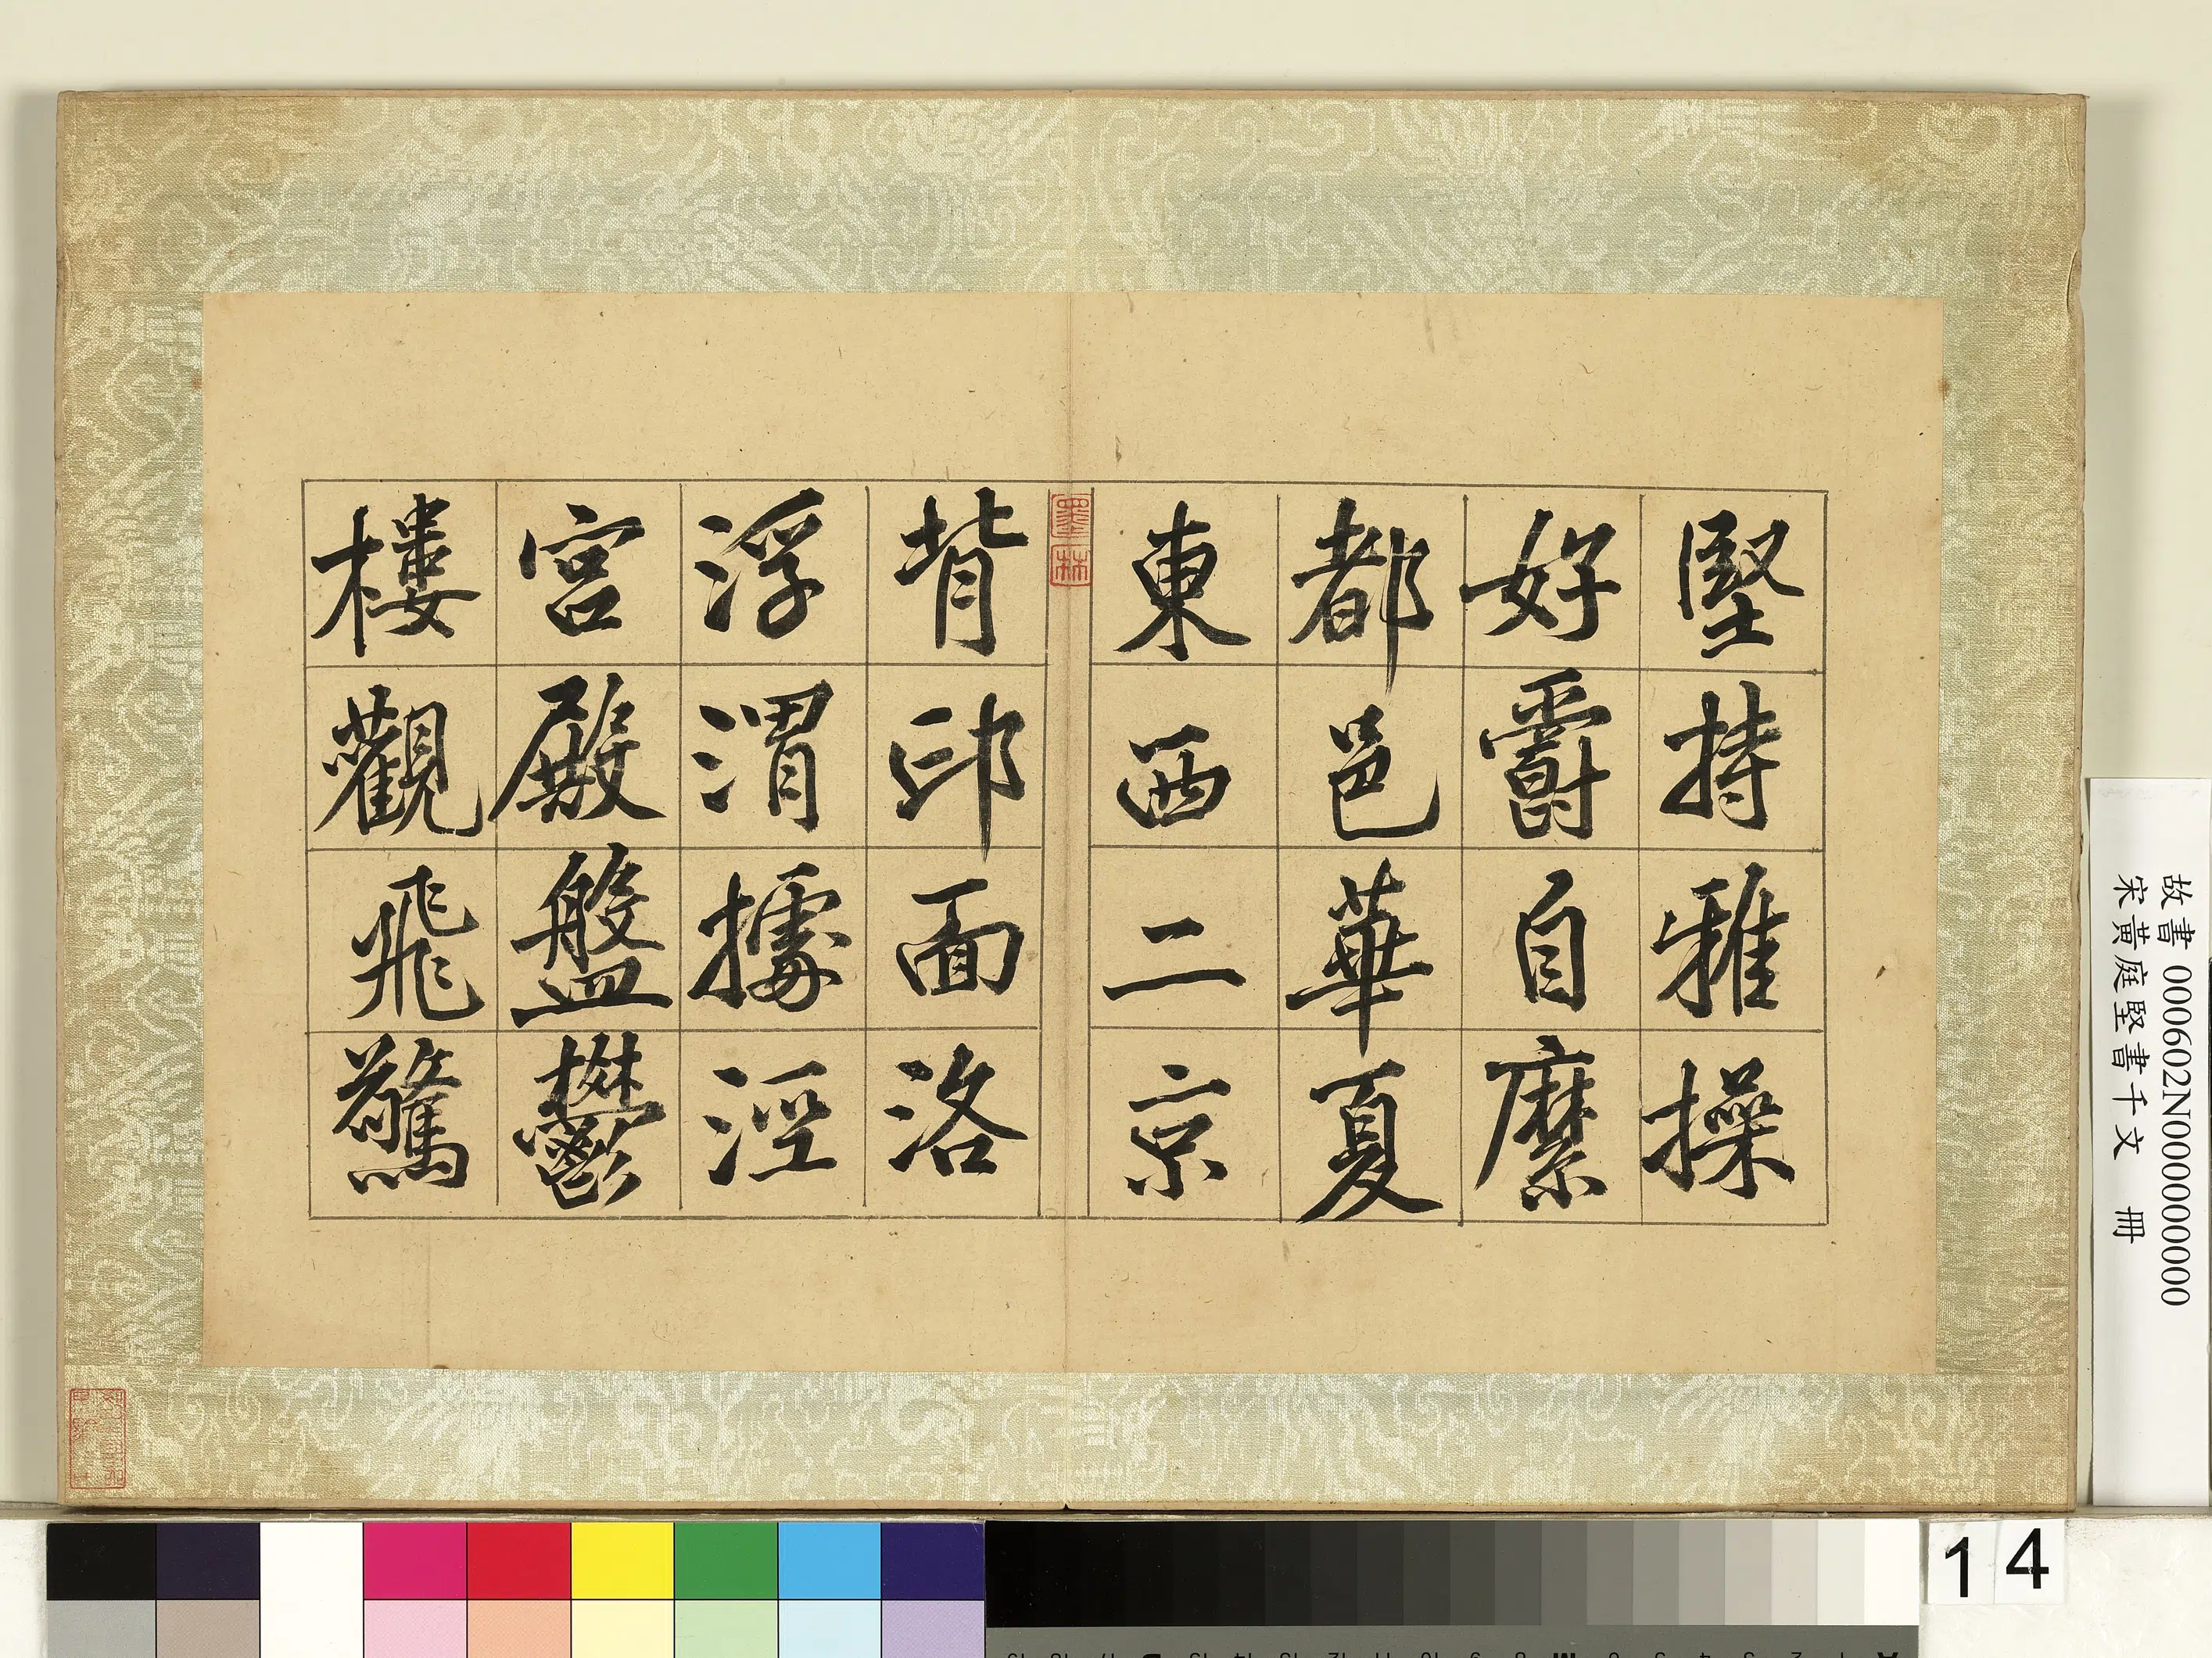 堅持雅操
好爵自縻
都邑華夏
東西二京
背邙面洛
浮渭據涇
宮殿盤鬱
樓觀飛驚
墨林
故書 000602N000000000
宋黃庭堅書千文 冊
14